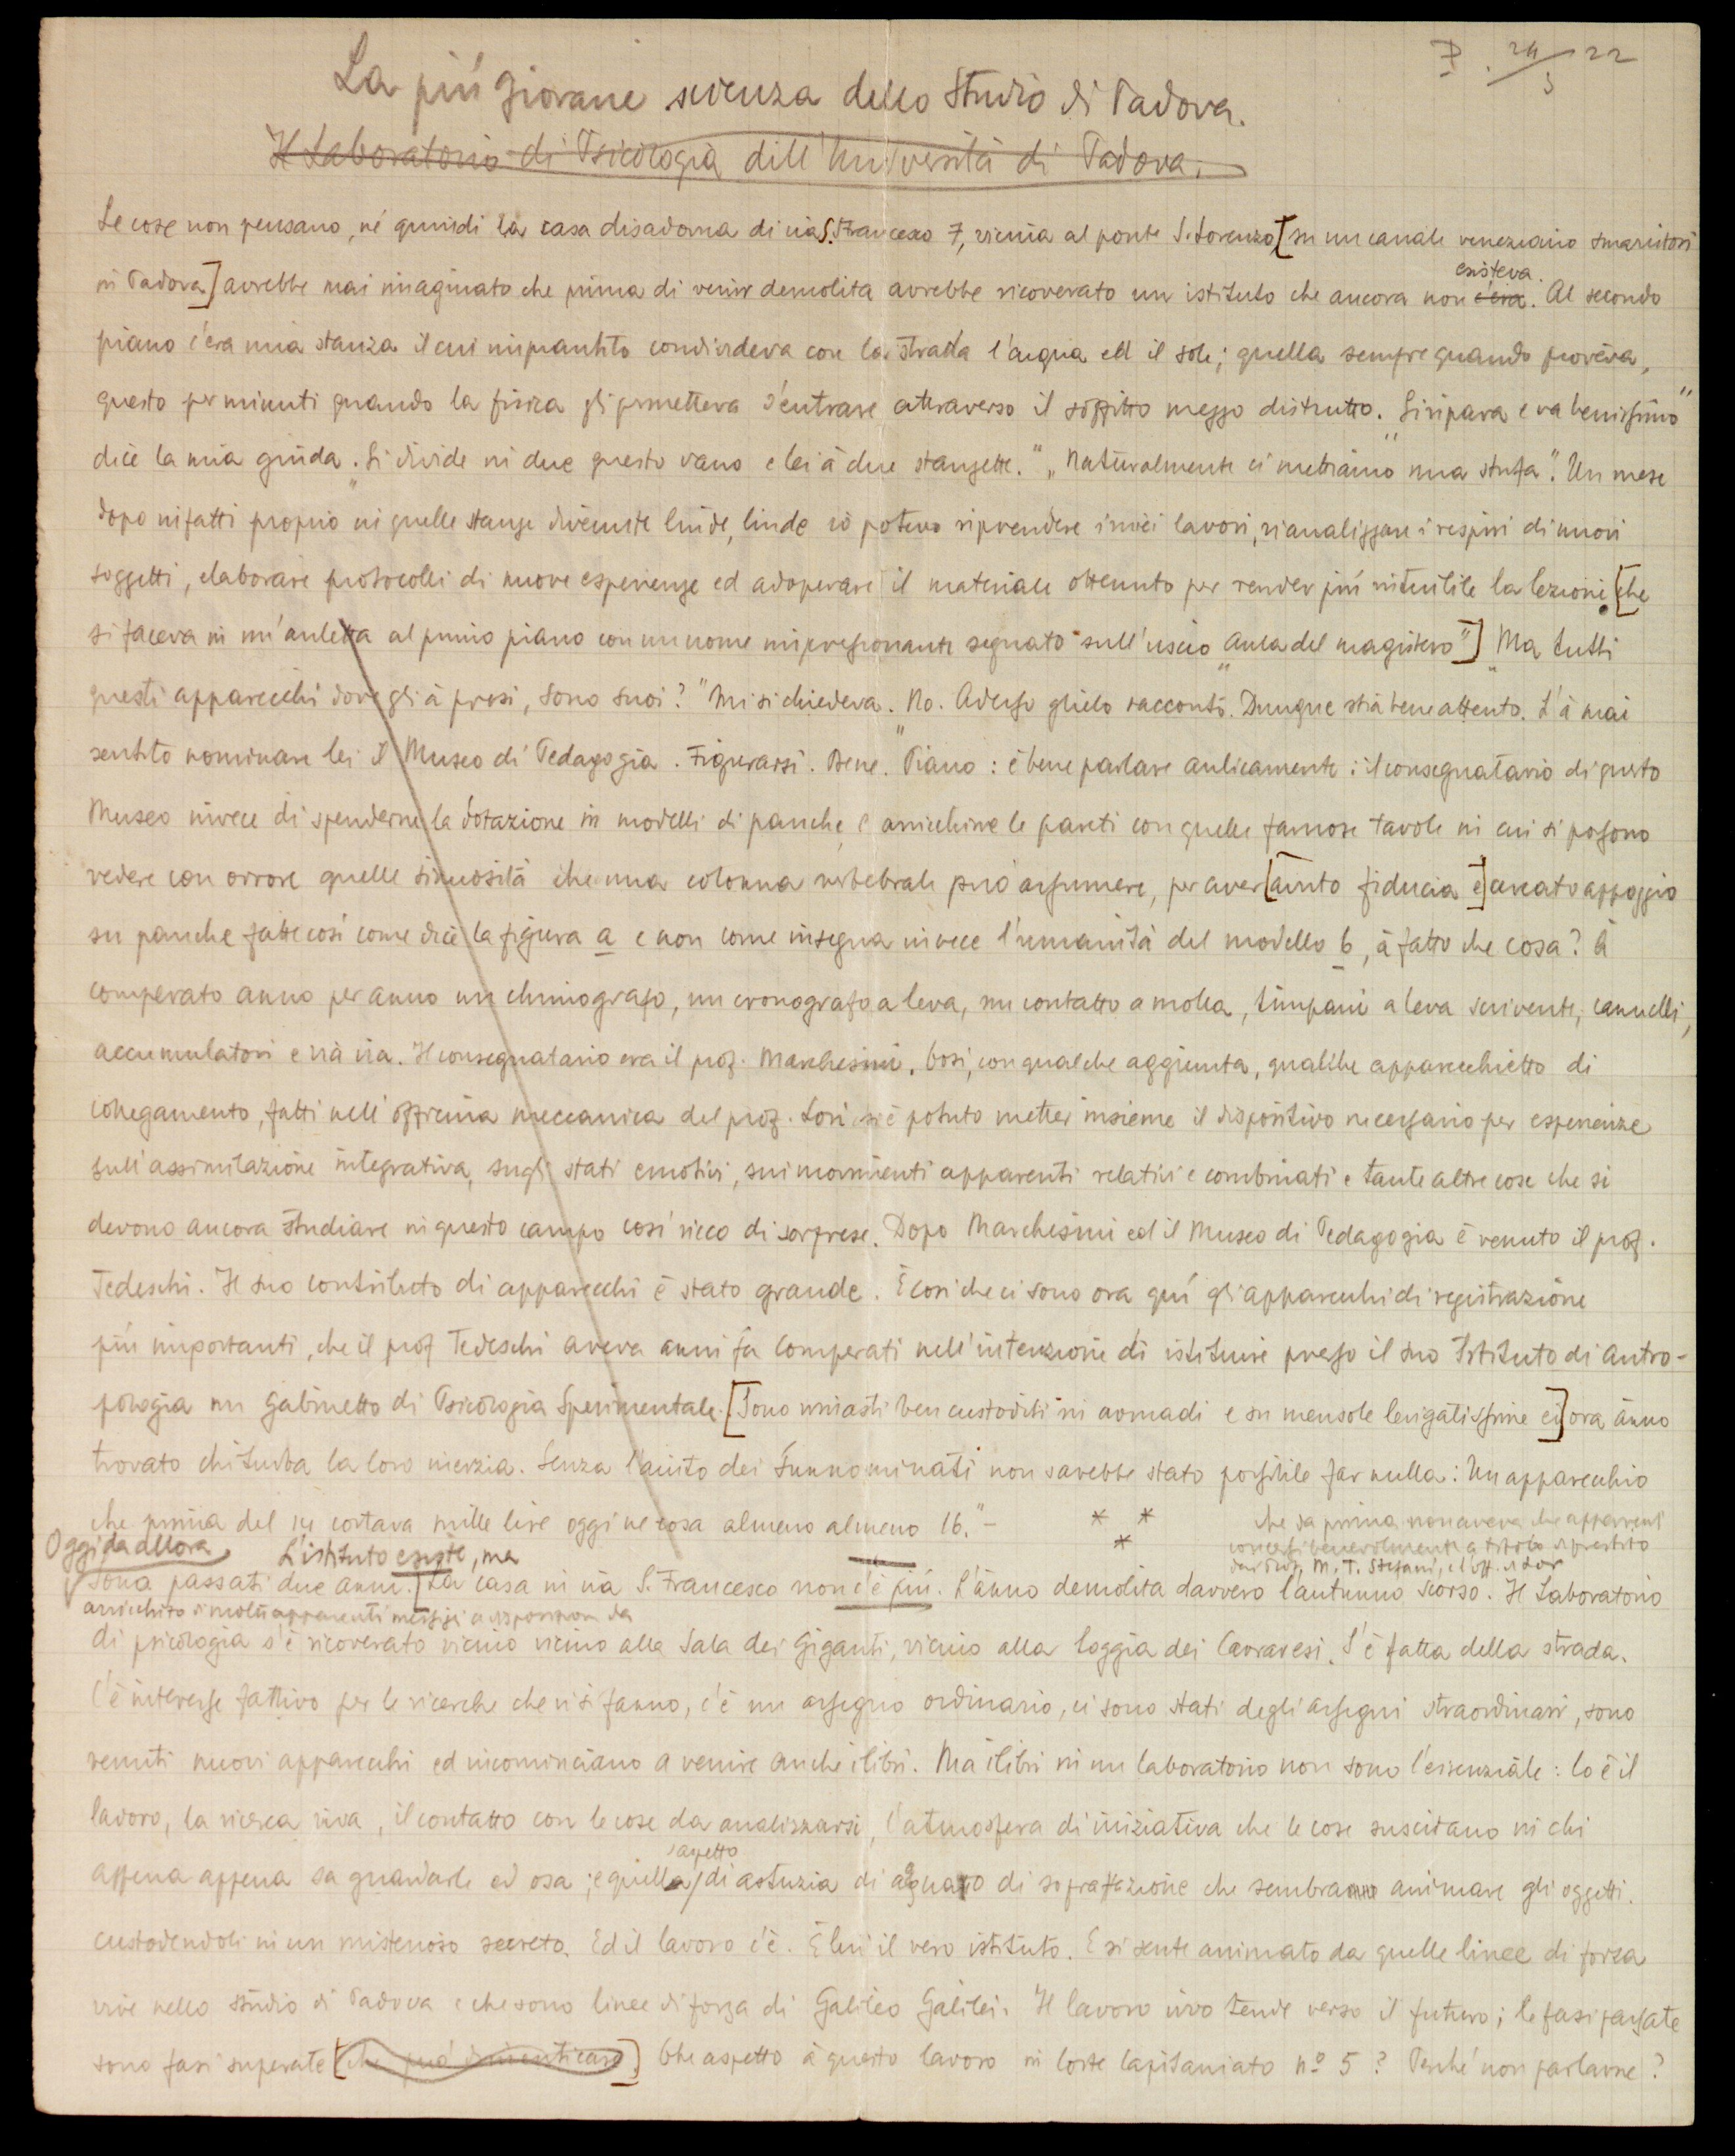 P. 24/5 22
La più giovane scienza dello Studio di Padova.
Il Laboratorio di Psicologia dell'Università di Padova.
Le cose non pensano, né quindi la casa disadorna di via S. Francesco 7, vicina al ponte S. Lorenzo [su un canale veneziano smarritosi
in Padova] avrebbe mai imaginato che prima di venir demolita avrebbe ricoverato un istituto che ancora non c'era. esisteva. Al secondo
piano c'era una stanza il cui impiantito condivideva con la strada l'acqua ed il sole; quella sempre quando pioveva,
questo per minuti quando la fisica gli permetteva d'entrare attraverso il soffitto mezzo distrutto. "Si ripara e va benissimo"
dice la mia guida. "Si divide in due questo vano e lei à due stanzette." "Naturalmente ci mettiamo una stufa". Un mese
dopo infatti proprio in quelle stanze divenute linde, linde io potevo riprendere i miei lavori, rianalizzare i respiri di nuovi
soggetti, elaborare protocolli di nuove esperienze ed adoperare il materiale ottenuto per render più intuitile la lezione. [che
si faceva in un'auletta al primo piano con un nome impressionante segnato sull'uscio "Aula del magistero"] "Ma tutti
questi apparecchi dove gli à presi, sono suoi?" Mi si chiedeva. No. Adesso glielo racconto. Dunque stia bene attento. L'à mai
sentito nominare lei il Museo di Pedagogia. Figurarsi. Bene. "Piano: è bene parlare aulicamente: il consegnatario di questo
Museo invece di spenderne la dotazione in modelli di panche, e arricchirne le pareti con quelle famose tavole in cui si possono
vedere con orrore quelle sinuosità che una colonna vertebrale può assumere, per aver [avuto fiducia e] cercato appoggio
su panche fatte così come dice la figura a e non come insegna invece l'umanità del modello b, à fatto che cosa? À
comperato anno per anno un chimografo, un cronografo a leva, un contatto a molla, timpani a leva scrivente, cannelli,
accumulatori e via via. Il consegnatario era il prof. Marchesini. Così, con qualche aggiunta, qualche apparecchietto di
collegamento, fatti nell'officina meccanica del prof. Lori si è potuto metter insieme il dispositivo necessario per esperienze
sull'assimilazione integrativa, sugli stati emotivi, sui movimenti apparenti relativi e combinati e tante altre cose che si
devono ancora studiare in questo campo così ricco di sorprese. Dopo Marchesini ed il Museo di Pedagogia è venuto il prof.
Tedeschi. Il suo contributo di apparecchi è stato grande. È così che ci sono ora quì gli apparecchi di registrazione
più importanti, che il prof Tedeschi aveva anni fa comperati nell'intenzione di istituire presso il suo Istituto di Antro-
pologia un Gabinetto di Psicologia Sperimentale. [Sono rimasti ben custoditi in armadi e su mensole levigatissime ed] ora ànno
trovato chi turba la loro inerzia. Senza l'aiuto dei sunnominati non sarebbe stato possibile far nulla: Un apparecchio
che prima del 14 costava mille lire oggi ne cosa almeno almeno 16." –
* * *
che da prima non aveva che apparecchi
concessi benevolmente a titolo di prestito
dai Prof. M. T. Stefani, e l'off. di Lor
Oggi da allora L'istituto esiste, ma
Sono passati due anni. [La casa in via S. Francesco non c'è più. L'ànno demolita davvero l'autunno scorso. Il Laboratorio
arricchito di molti apparecchi messigi a disposizion da
di psicologia s'è ricoverato vicino vicino alla Sala dei Giganti, vicino alla loggia dei Carraresi. S'è fatta della strada.
C'è interesse fattivo per le ricerche che vi si fanno, c'è un assegno ordinario, ci sono stati degli assegni straordinari, sono
venuti nuovi apparecchi ed incominciano a venire anche i libri. Ma i libri in un laboratorio non sono l'essenziale: lo è il
lavoro, la ricerca viva, il contatto con le cose da analizzarsi, l'atmosfera di iniziativa che le cose suscitano in chi
appena appena sa guardarle ed osa; e quell'aspetto di astuzia di agguato di sopraffazione che sembra animare gli oggetti.
custodendoli in un misterioso secreto. Ed il lavoro c'è. È lui il vero istituto. E si sente animato da quelle linee di forza
vive nello studio di Padova e che sono linee di forza di Galileo Galilei. Il lavoro vivo tende verso il futuro; le fasi passate
sono fasi superate [che può dimenticare] Che aspetto à questo lavoro in Corte Capitaniato nº 5? Perché non parlarne?